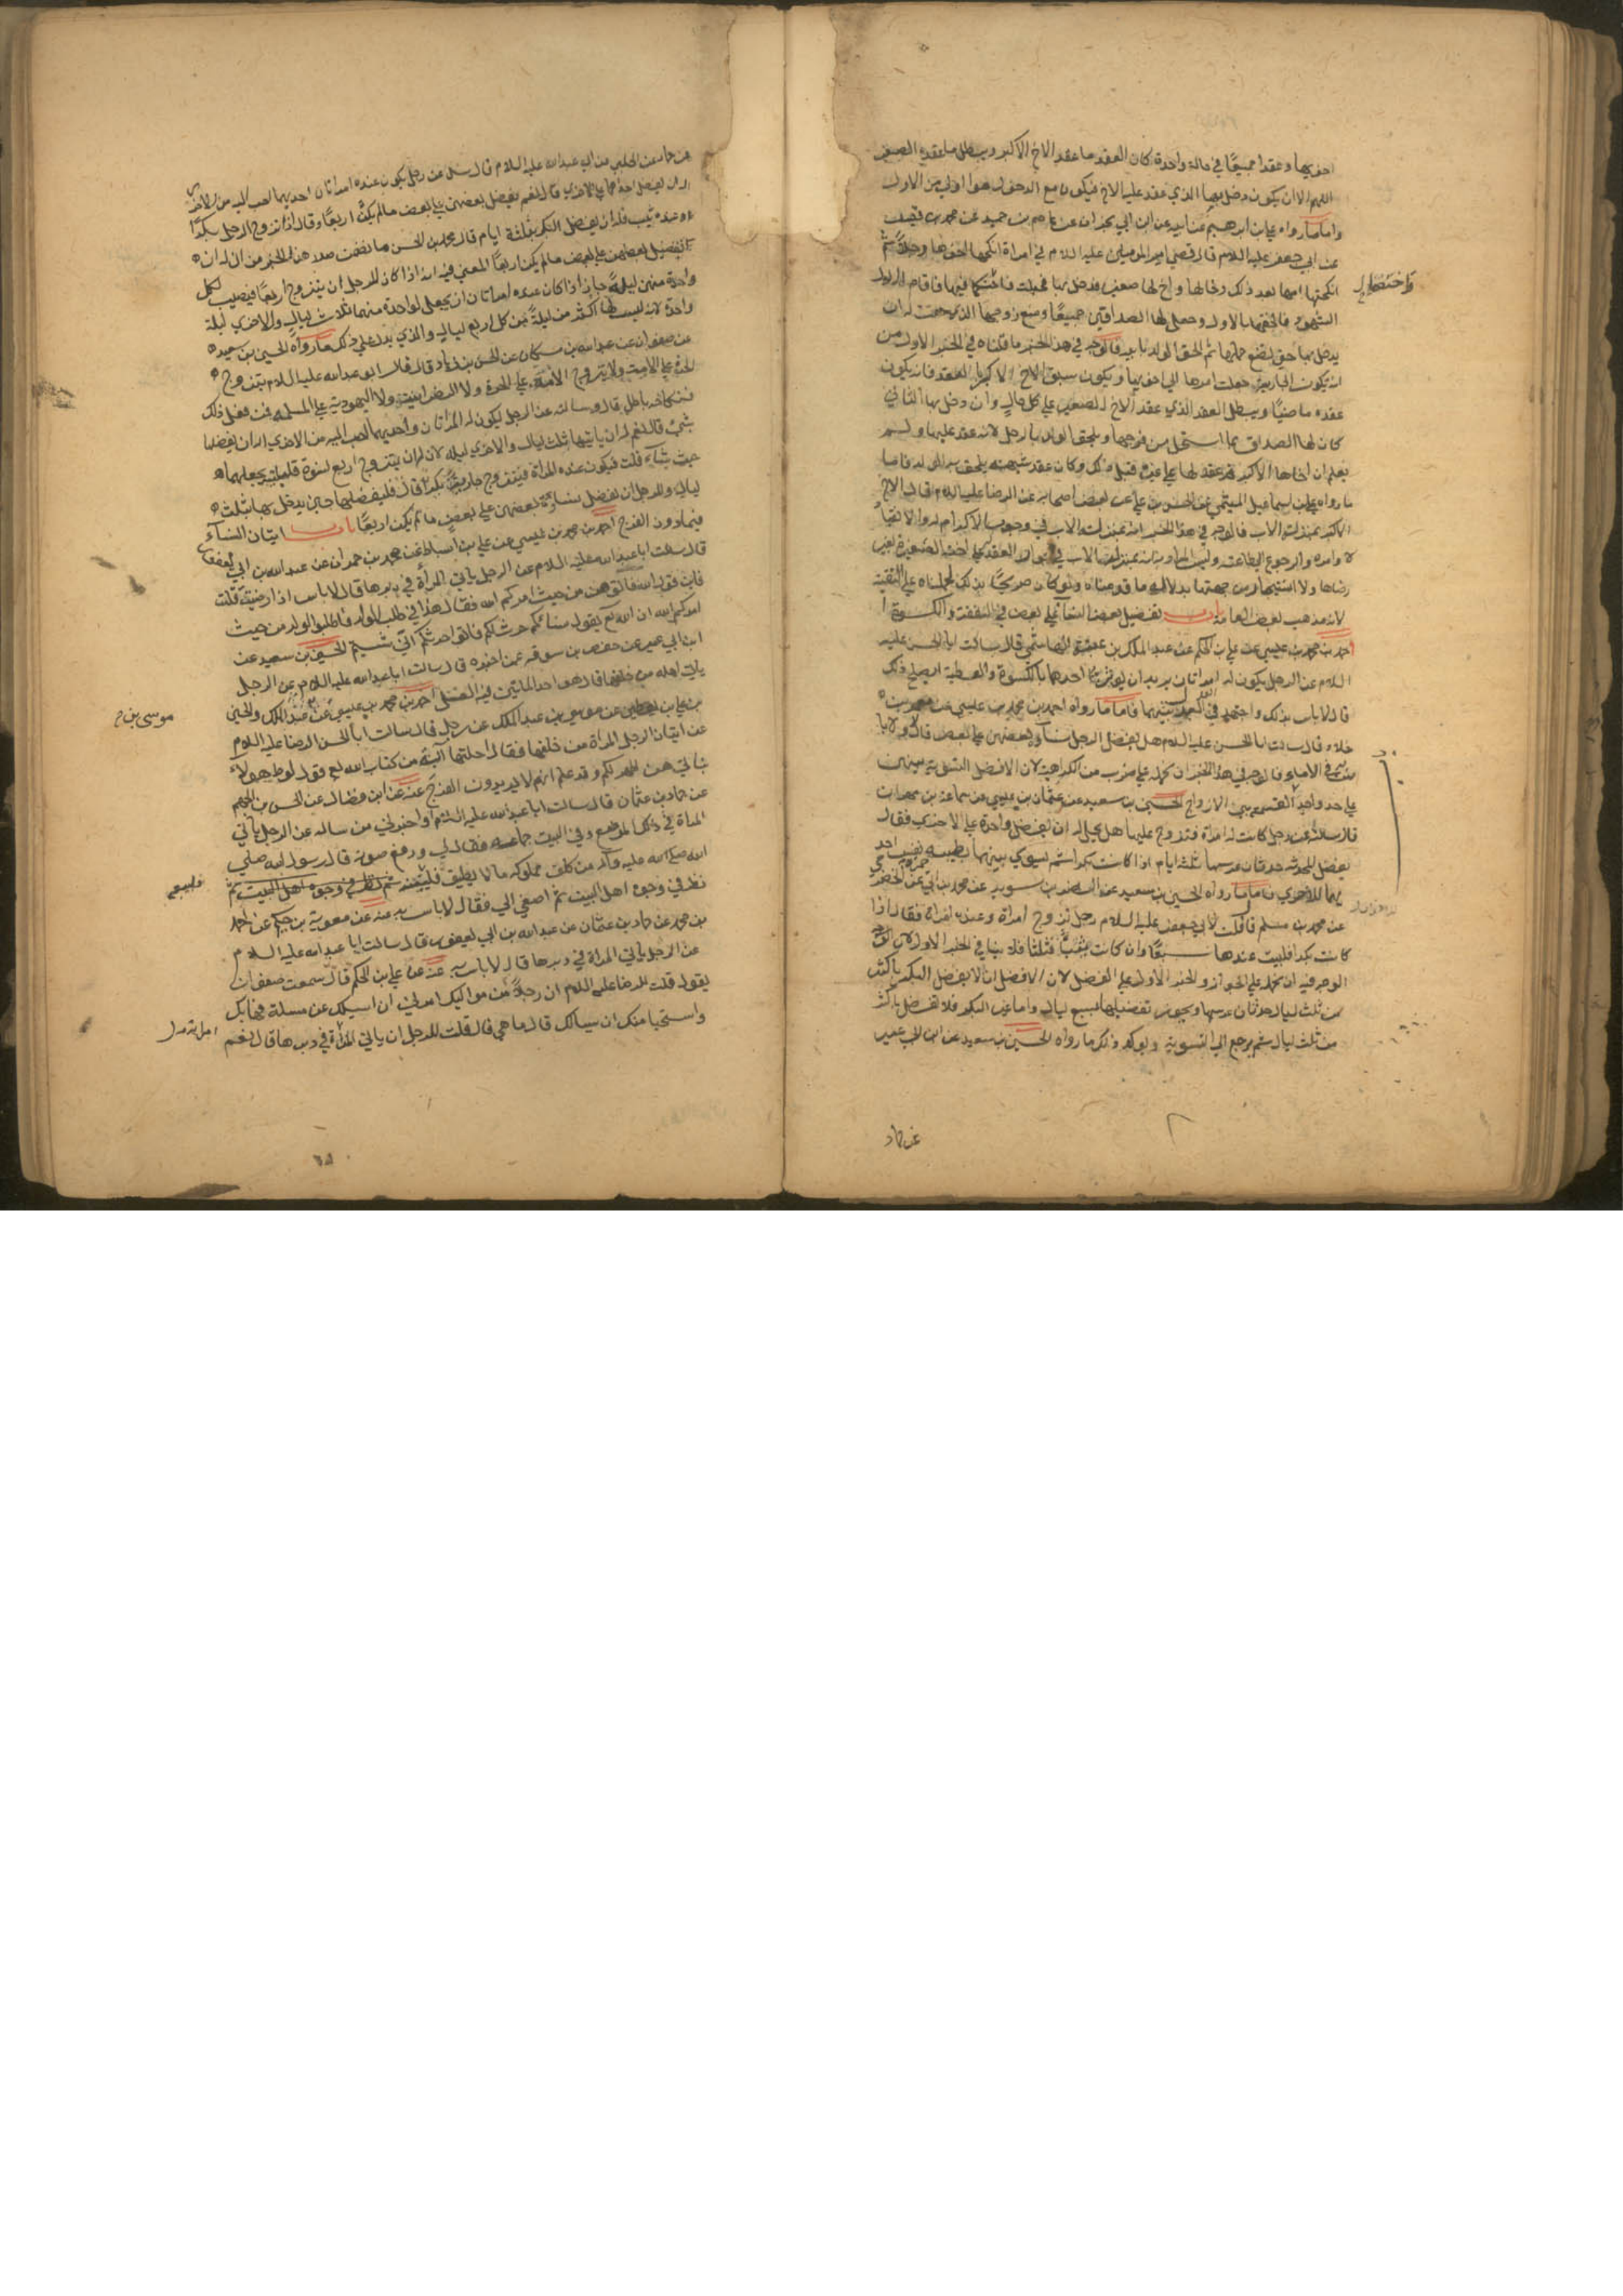 احدهما وعقدا جميعًا في حالة واحدة كان العقد ما عقد الاخ الاكبر ويبطل ما عقد الصغير
اللهم الا ان يكون دخل بها الذي عقد عليه الاخ فيكون مع الدخول هو اولى من الاول
واما ما رواه علي بن ابرهيم عن ابيه عن ابن ابي نجران عن عاصم بن حميد عن محمد بن قيس
عن ابي جعفر عليه السلام قال قضي امير المومنين عليه السلام في امراة انكحها اخوها رجلاً ثم
انكحتها امها بعد ذلك رجلا وخالها واخ لها صغير فدخل بها فحبلت فاحتكما فيها فاقام الاول
الشهود فالحقها بالاول وجعل لها الصداقين جميعًا ومنع زوجها الذي حقت له ان
يدخل بها حتى تضع حملها ثم الحق الولد بابيه فالوجه في هذا الخبر ما قلناه في الخبر الاول من
ان يكون الجارية جعلت امرها الى اخويها ويكون سبق الاخ الاكبر بالعقد فانه يكون
عقده ماضيًا ويبطل العقد الذي عقد الاخ الصغير على كل حال وان دخل بها الثاني
كان لها الصداق بما استحل من فرجها ويلحق الولد بالرجل لانه عقد عليها ولم
يعلم ان اخاها الاكبر قد عقد لها على غيره قبل ذلك وكان عقد شبهة يلحق به الولد فاما
ما رواه علي بن اسماعيل الميثمي عن الحسن بن علي عن بعض اصحابه عن الرضا عليه السلام قال الاخ
الاكبر بمنزلة الاب فالوجه في هذا الخبر انه بمنزلة الاب في وجوب الاكرام له والانقياد
لاوامره والرجوع الى طاعته وليس المراد به انه بمنزلة الاب في جواز العقد على اخته الصغيرة بغير
رضاها ولا استيمار من جهتها بدلالة ما قدمناه ولو كان صريحًا بذلك لحملناه على التقية
لانه مذهب بعض العامة باب تفضيل بعض النساء على بعض في النفقة والكسوة
احمد بن محمد بن عيسى عن علي بن الحكم عن عبد الملك بن عتبة الهاشمي قال سالت ابا الحسن عليه
السلام عن الرجل يكون له امراتان يريد ان يوثر احدهما بالكسوة والعطية ايصلح ذلك
قال لا باس بذلك واجتهد في العدل بينهما فاما ما رواه احمد بن محمد بن عيسى عن معمر بن
خلاد قال سالت ابا الحسن عليه السلام هل يفضل الرجل نساءه بعضهن على بعض قال لا ولا باس
به في الاماء فالوجه في هذا الخبر ان نحمله على ضرب من الكراهية لان الافضل التسوية بينهن
على حد واحد القسمة بين الازواج الحسين بن سعيد عن عثمان بن عيسى عن سماعة بن مهران
قال سالته عن رجل كانت له امراة فتزوج عليها هل يحل له ان يفضل واحدة على الاخرى فقال
يفضل المحدثة حدثان عرسها ثلثة ايام اذا كانت بكرا ثم يسوي بينهما بطيبة نفس احد
يهما للاخرى فاما ما رواه الحسين بن سعيد عن النضر بن سويد عن محمد بن ابي حمزة عن الحضرمي
عن محمد بن مسلم قال قلت لابي جعفر عليه السلام رجل تزوج امراة وعنده امراة فقال اذا
كانت بكرا فليبت عندها سبعًا وان كانت ثيبًا فثلثا فلا ينافي الخبر الاول لان
الوجه فيه ان نحمله على الجواز والخبر الاول على الفضل لان الافضل ان لا يفضل البكر باكثر
من ثلث ليال حدثان عرسها ويجوز تفضيلها بسبع ليال واما غير البكر فلا تفضل باكثر
من ثلث ليال ثم يرجع الى التسوية ويوكد ذلك ما رواه الحسين بن سعيد عن ابن ابي عمير
عن حماد
عن حماد عن الحلبي عن ابي عبد الله عليه السلام قال سئل عن رجل يكون عنده امراتان احديهما احب اليه من الاخرى
اله ان يفضل احديهما على الاخرى قال نعم يفضل بعضهن على بعض ما لم يكن اربعًا وقال اذا تزوج الرجل بكرًا
وعنده ثيب فله ان يفضل البكر بثلثة ايام قال محمد بن الحسن ما تضمن صدر هذا الخبر من ان له ان
يفضل بعضهن على بعض ما لم يكن اربعًا المعني فيه انه اذا كان للرجل ان يتزوج اربعًا فيصيب لكل
واحدة منهن ليلة جاز اذا كان عنده امراتان ان يجعل لواحدة منهما ثلاث ليال والاخرى ليلة
واحدة لانه ليست لها اكثر من ليلة من كل اربع ليال والذي يدل على ذلك ما رواه الحسين بن سعيد
عن صفوان عن عبد الله بن مسكان عن الحسن بن زياد قال قال ابو عبد الله عليه السلام يتزوج
الحرة على الامة ولا يتزوج الامة على الحرة ولا النصرانية ولا اليهودية على المسلمة فمن فعل ذلك
فنكاحه باطل قال وسالته عن الرجل يكون له المراتان واحديهما احب اليه من الاخرى اله ان يفضلها
بشيء قال نعم له ان ياتيها ثلث ليال والاخرى ليلة لان له ان يتزوج اربع نسوة فليلتيه يجعلهما
حيث شاء قلت فيكون عنده المراة فيتزوج جارية بكرا قال فليفضلها حين يدخل بها بثلث
ليال وللرجل ان يفضل نساءه بعضهن على بعض ما لم يكن اربعًا باب اتيان النساء
فيما دون الفرج احمد بن محمد بن عيسى عن علي بن اسباط عن محمد بن حمران عن عبد الله بن ابي يعفور
قال سالت ابا عبد الله عليه السلام عن الرجل ياتي المراة في دبرها قال لا باس اذا رضيت قلت
فاين قول الله فاتوهن من حيث امركم الله فقال هذا في طلب الولد فاطلبوا الولد من حيث
امركم الله ان الله تع يقول نساؤكم حرث لكم فاتوا حرثكم انى شئتم الحسين بن سعيد عن
ابن ابي عمير عن حفص بن سوقه عمن اخبره قال سالت ابا عبد الله عليه السلام عن الرجل
ياتي اهله من خلفها قال هو احد الماتيين فيه الغسل احمد بن محمد بن عيسى عن عبد الملك والحسن
بن علي بن يقطين عن موسى بن عبد الملك عن رجل قال سالت ابا الحسن الرضا عليه السلام
عن اتيان الرجل المراة من خلفها فقال احلتها آية من كتاب الله تع قول لوط هولاء
بناتي هن اطهر لكم وقد علم انهم لا يريدون الفرج عنه عن ابن فضال عن الحسن بن الجهم
عن حماد بن عثمان قال سالت ابا عبد الله عليه السلام او اخبرني من ساله عن الرجل ياتي
المراة في ذلك الموضع وفي البيت جماعة فقال لي ورفع صوته قال رسول الله صلى
الله عليه وآله من كلف مملوكه ما لا يطيق فليبعه ثم نظر في وجوه اهل البيت ثم
نظر في وجوه اهل البيت ثم اصغى الي فقال لا باس به عنه عن معوية بن حكيم عن احمد
بن محمد عن حماد بن عثمان عن عبد الله بن ابي يعفور قال سالت ابا عبد الله عليه السلام
عن الرجل ياتي المراة في دبرها قال لا باس به عنه عن علي بن الحكم قال سمعت صفوان
يقول قلت للرضا عليه السلام ان رجلاً من مواليك امرني ان اسئلك عن مسئلة فهابك
واستحيا منك ان يسالك قال ما هي قال قلت للرجل ان ياتي المراة في دبرها قال نعم
موسى بن
فليبعه